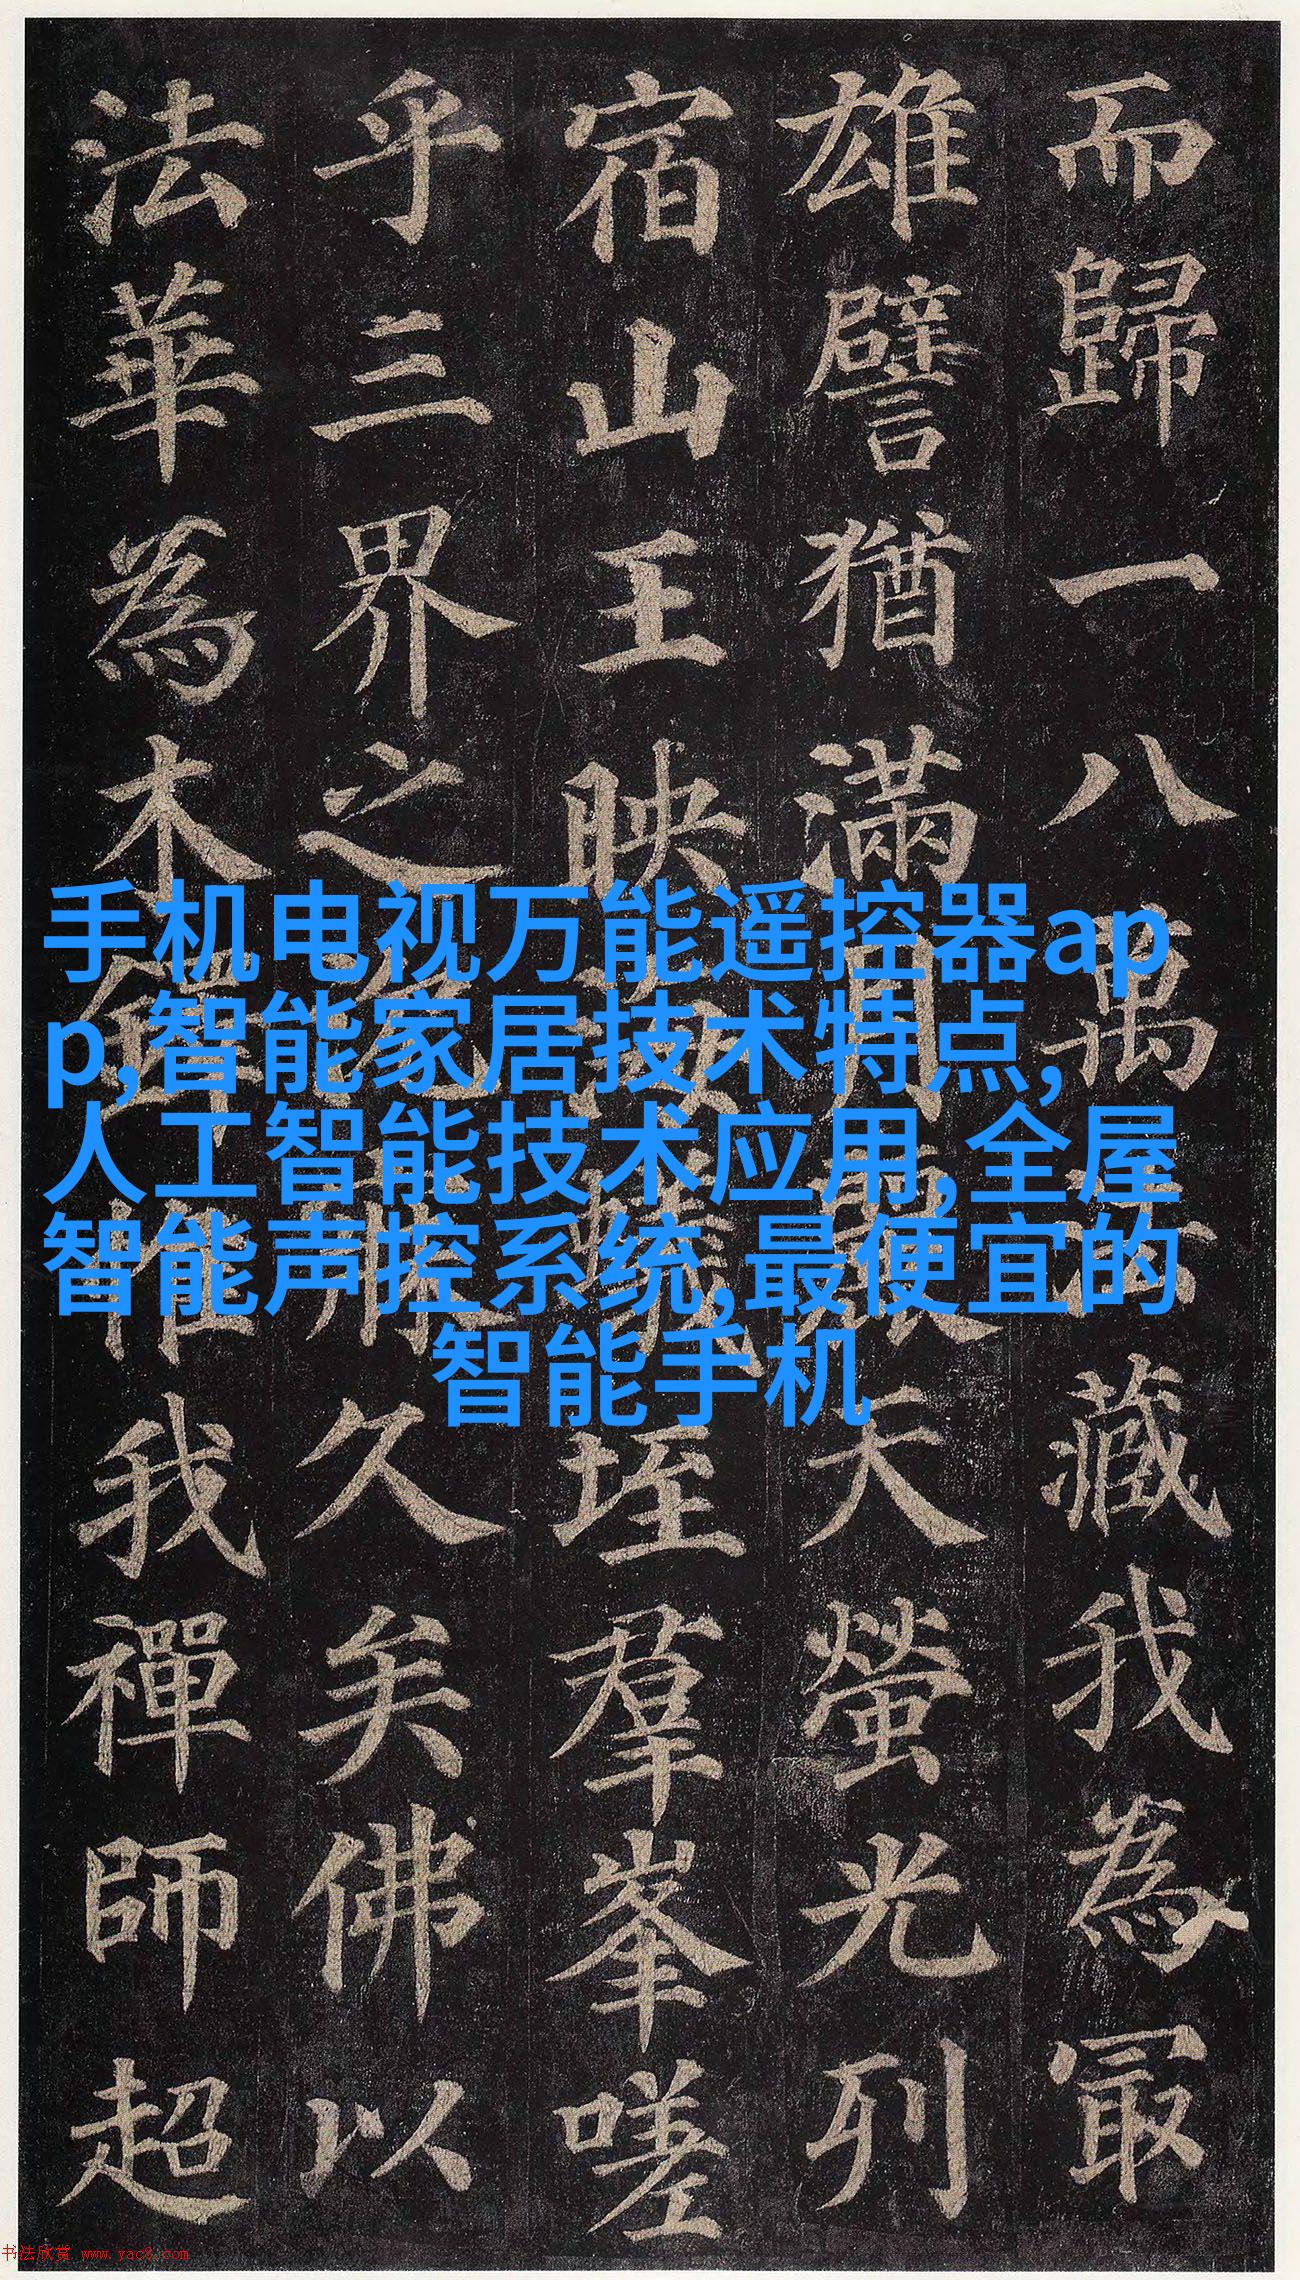 而歸一八萬法藏我為冣
雄譬猶滿月麗天螢光列
宿山王映海蟻垤羣峯嗟
乎三界之沉寐久矣佛以
法華為木鐸惟我禪師超
手机电视万能遥控器ap
p,智能家居技术特点,
人工智能技术应用,全屋
智能声控系统,最便宜的
智能手机
书法欣赏 www.yac8.com